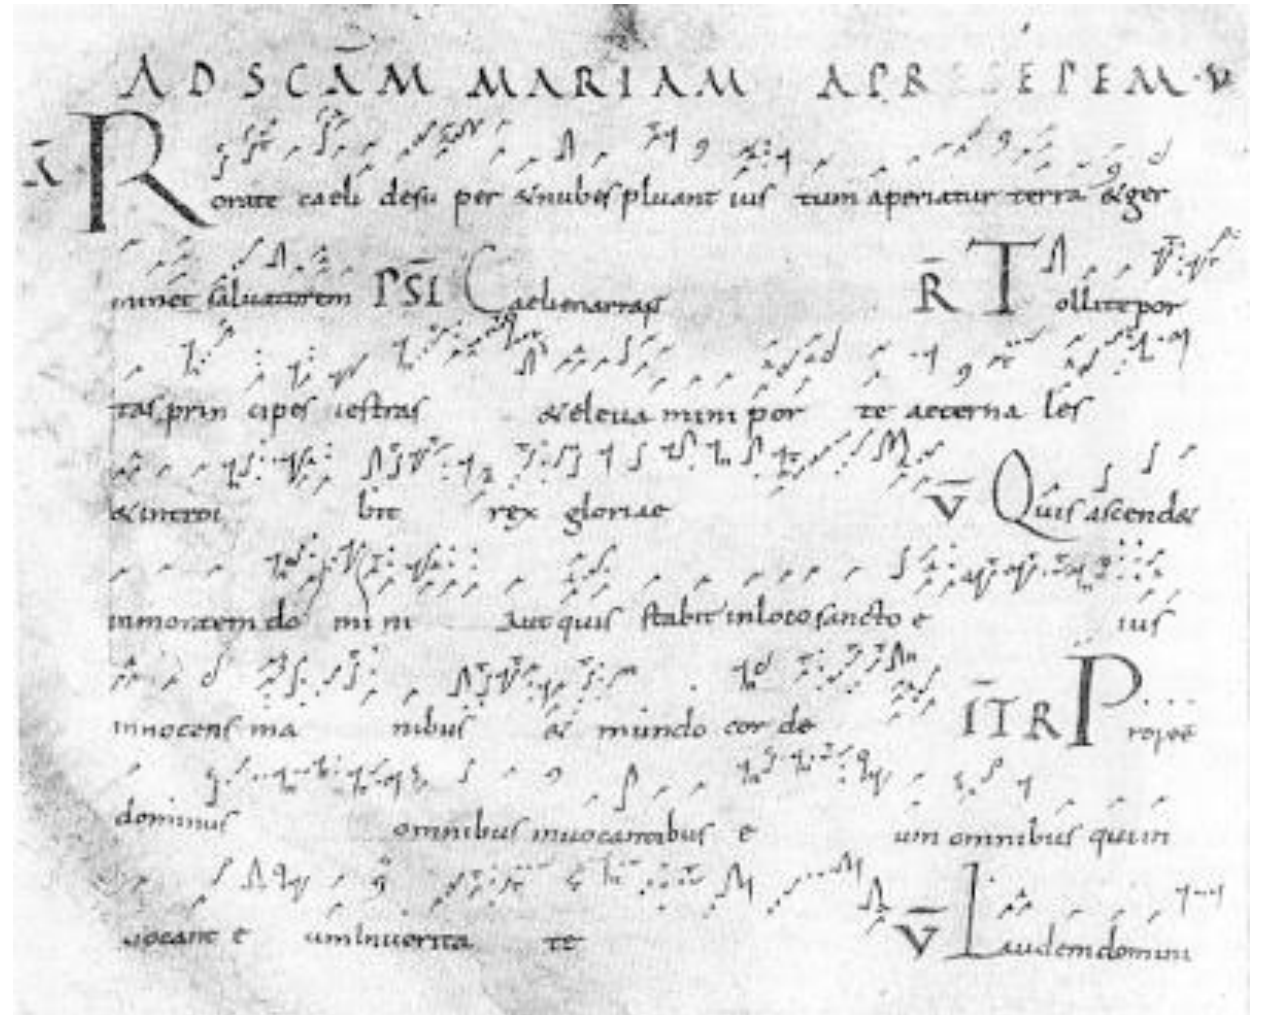 AD SCĀM MARIAM A PRESEPEM
Ā Rorate caeli desu per & nubes pluant ius tum aperiatur terra & ger
minet saluatorem PSL Caeli enarrant R̄ Tollite por
tas prin cipes uestras & eleua mini por te aeterna les
& introi bit rex gloriae V̄ Quis ascend&
in montem do mi ni Aut quis stabit in loco sancto e ius
innocens ma nibus & mundo cor de ITR Prope ē
dominus omnibus inuocantibus e um omnibus qui in
uocant e um In uerita te V̄ Laudem domini